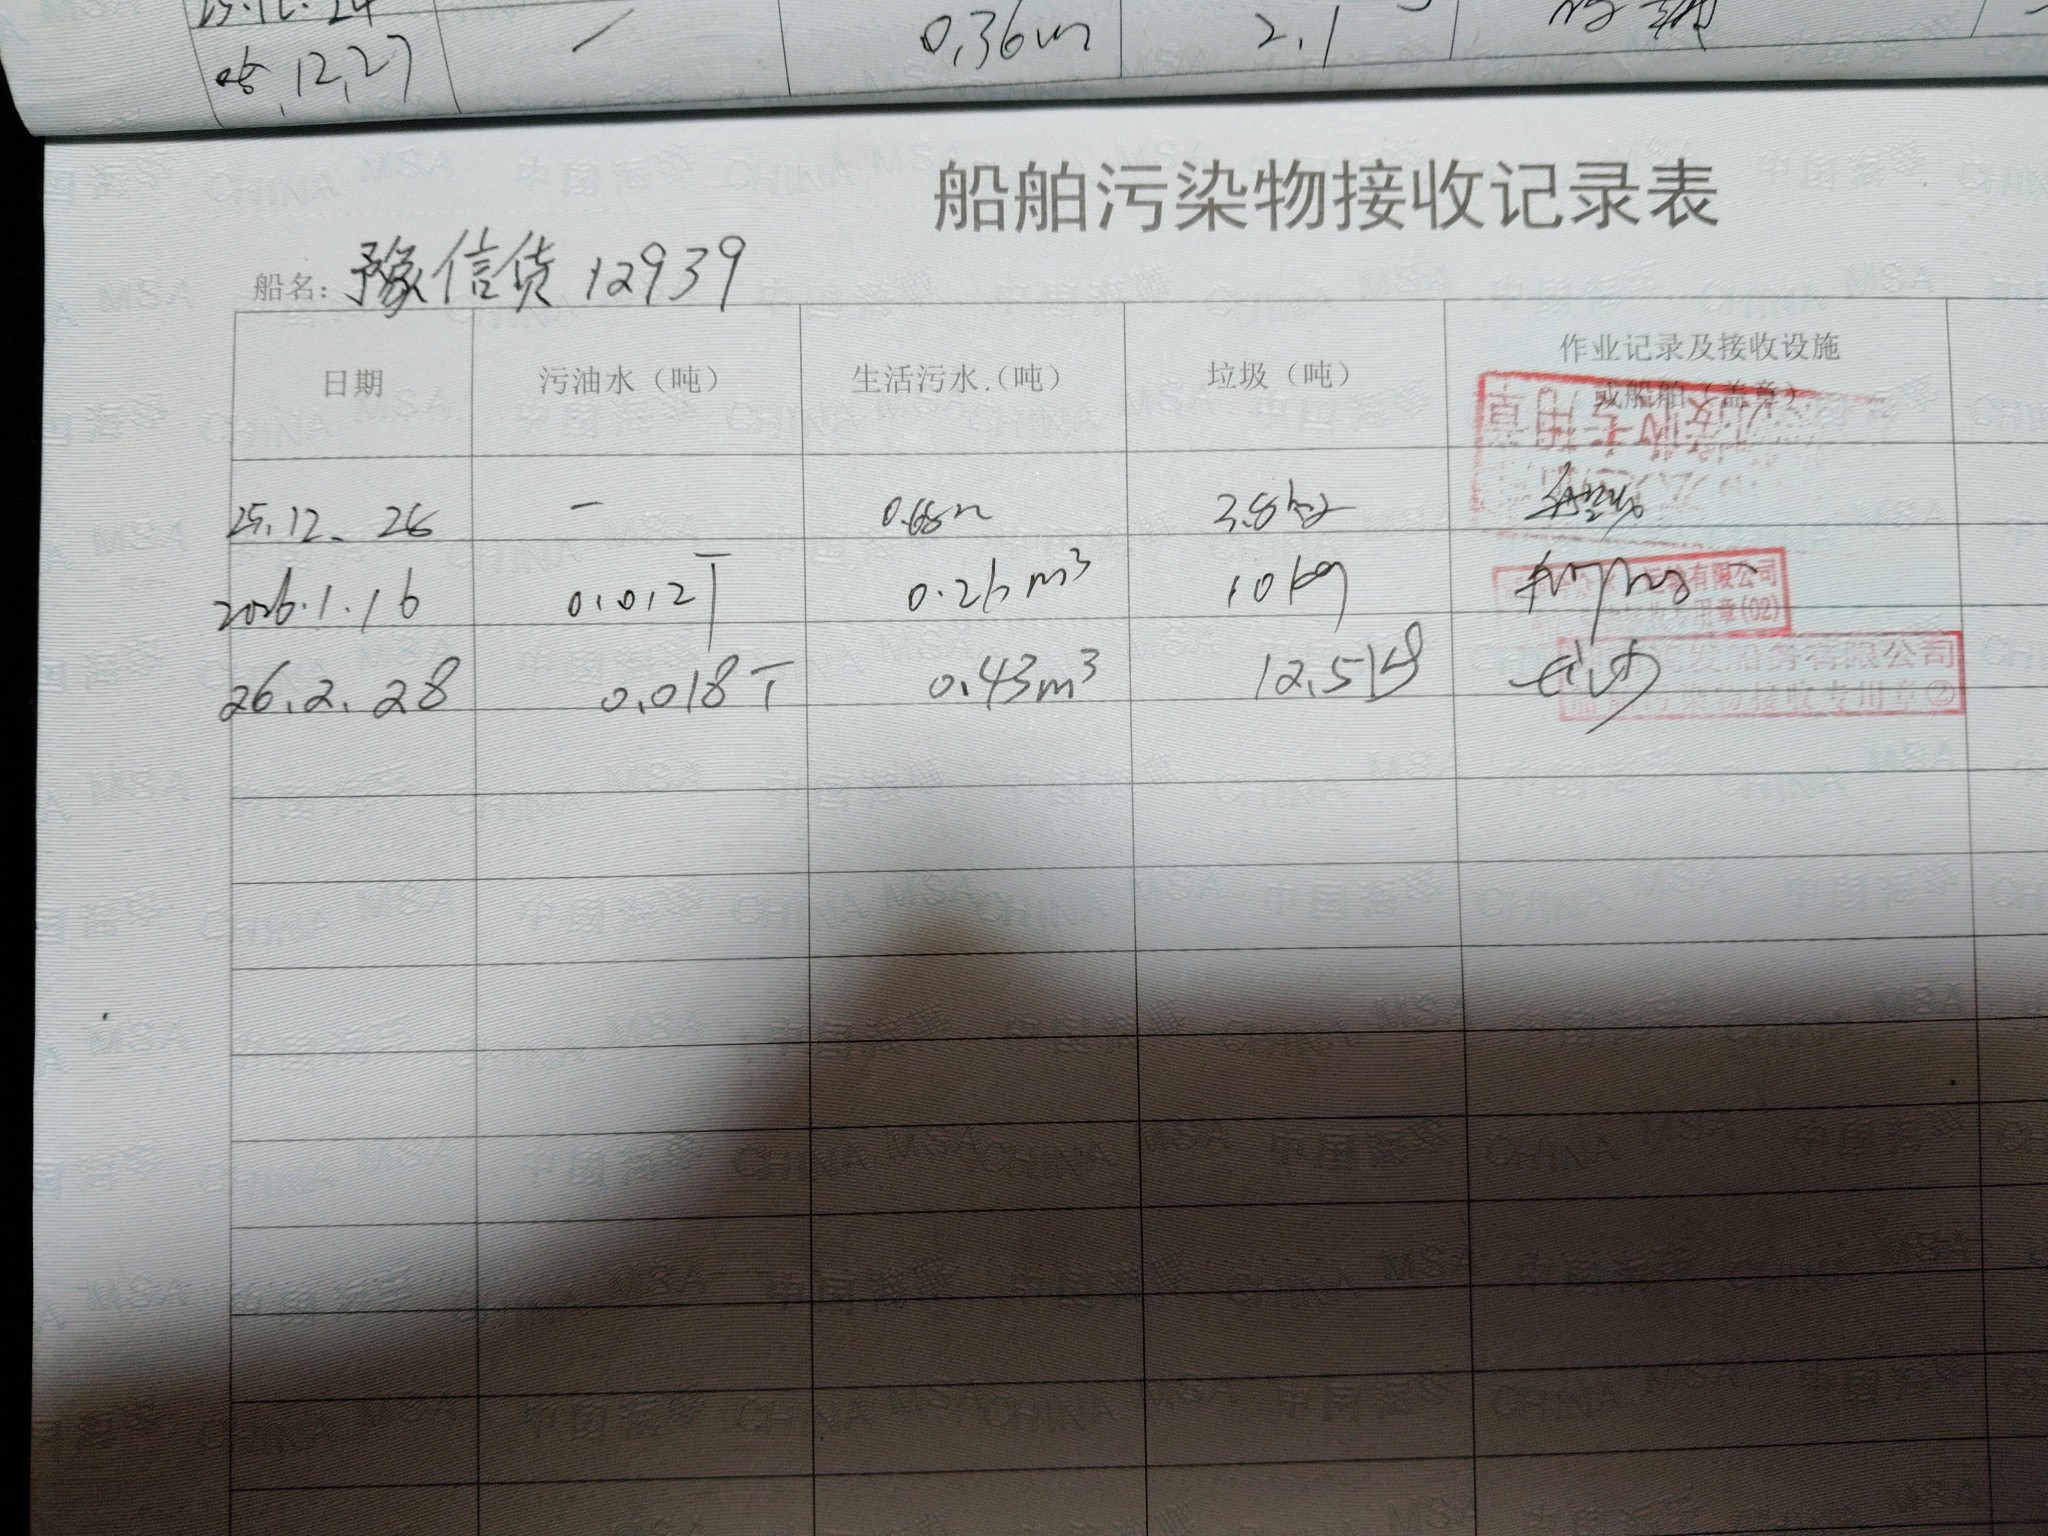 12.27 / 0.36m 2.1
船舶污染物接收记录表
船名: 豫信货12939
日期 污油水（吨） 生活污水（吨） 垃圾（吨） 作业记录及接收设施
或船舶（盖章）
接收专用章
25.12.26 — 3.8kg
2026.1.16 0.012T 0.26m³ 10kg
有限公司
用章(02)
26.2.28 0.018T 0.43m³ 12.5kg
发船务有限公司
污染物接收专用章②